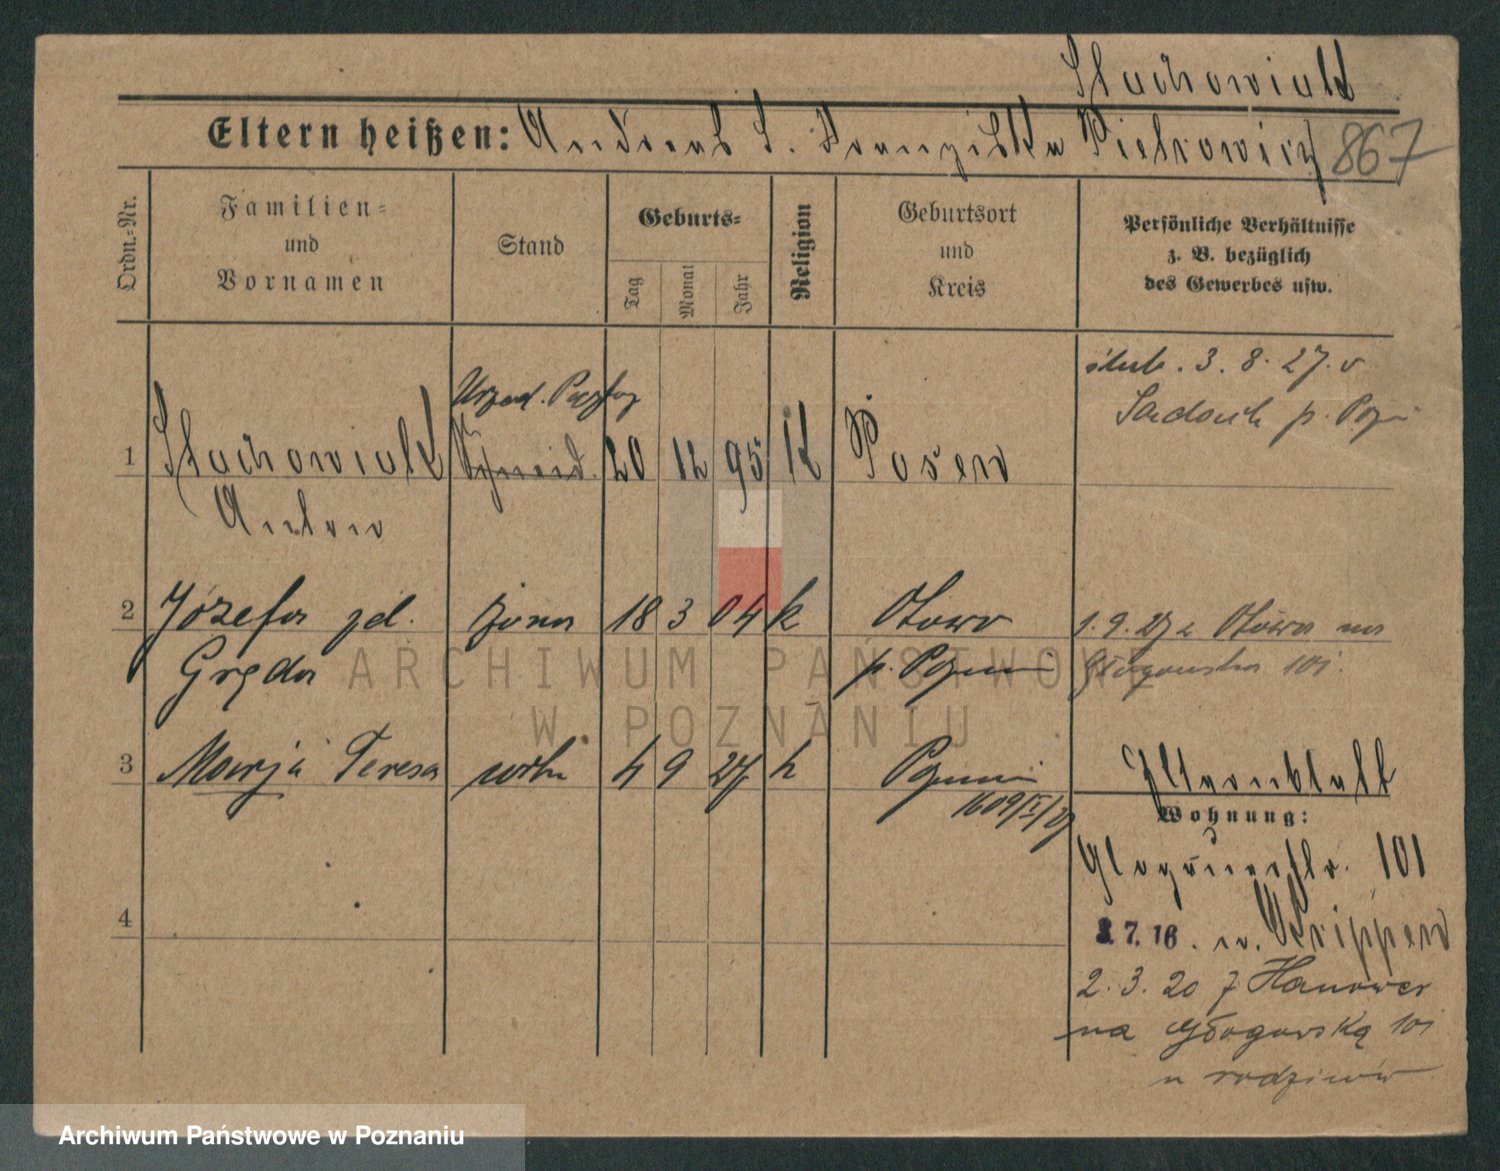 Stachowiak
Eltern heißen: Andreas u. Franziska Pietrowicz 867
Ordn.-Nr.
Familien-
und
Vornamen
Stand
Geburts-
Tag
Monat
Jahr
Religion
Geburtsort
und
Kreis
Persönliche Verhältnisse
z. B. bezüglich
des Gewerbes usw.
ślub. 3. 8. 27. v
p. Pozn
Urzęd.
1 Stachowiak 20 12 95 K Posen
Anton
2 Józefa zd. żona 18 3 04 k Otowo
Gręda p. Poznań
1. 9. 27 z Otowa na
Głogowska 101.
3 Marja Teresa córka 4 9 27 k Poznań
1609/I/27
Elternblatt
Wohnung:
Glogauerstr. 101
4
7. 16. n. Krippen
2. 3. 20 z Hanower
na Głogowską 101
u rodziców
ARCHIWUM PAŃSTWOWE
W POZNANIU
Archiwum Państwowe w Poznaniu